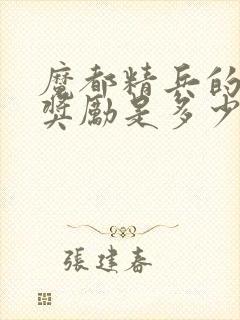 魔都精兵的
奬勵是多少
張建春